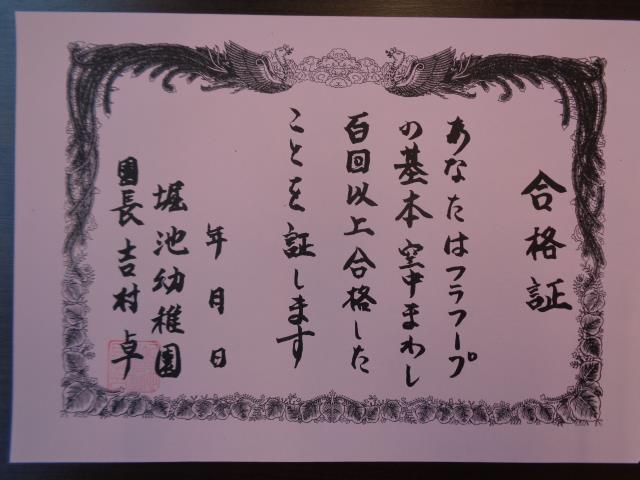 合格証
あなたはフラフープ
の基本空中まわし
百回以上合格した
ことを証します
年月日
堀池幼稚園
園長吉村卓